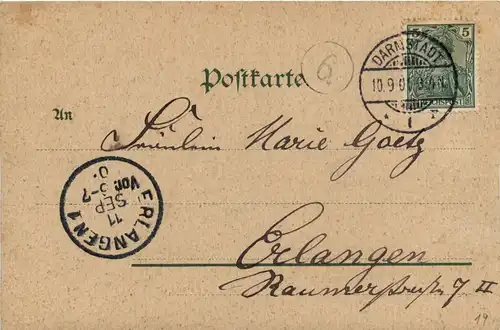 5
DARMSTADT
10.9.0
* 1 *
6.
Postkarte
An
Fräulein Marie Goetz
ERLANGEN 1
11
SEP
Vor. 6-7
0.
Erlangen
Raumerstraße 7 II
19